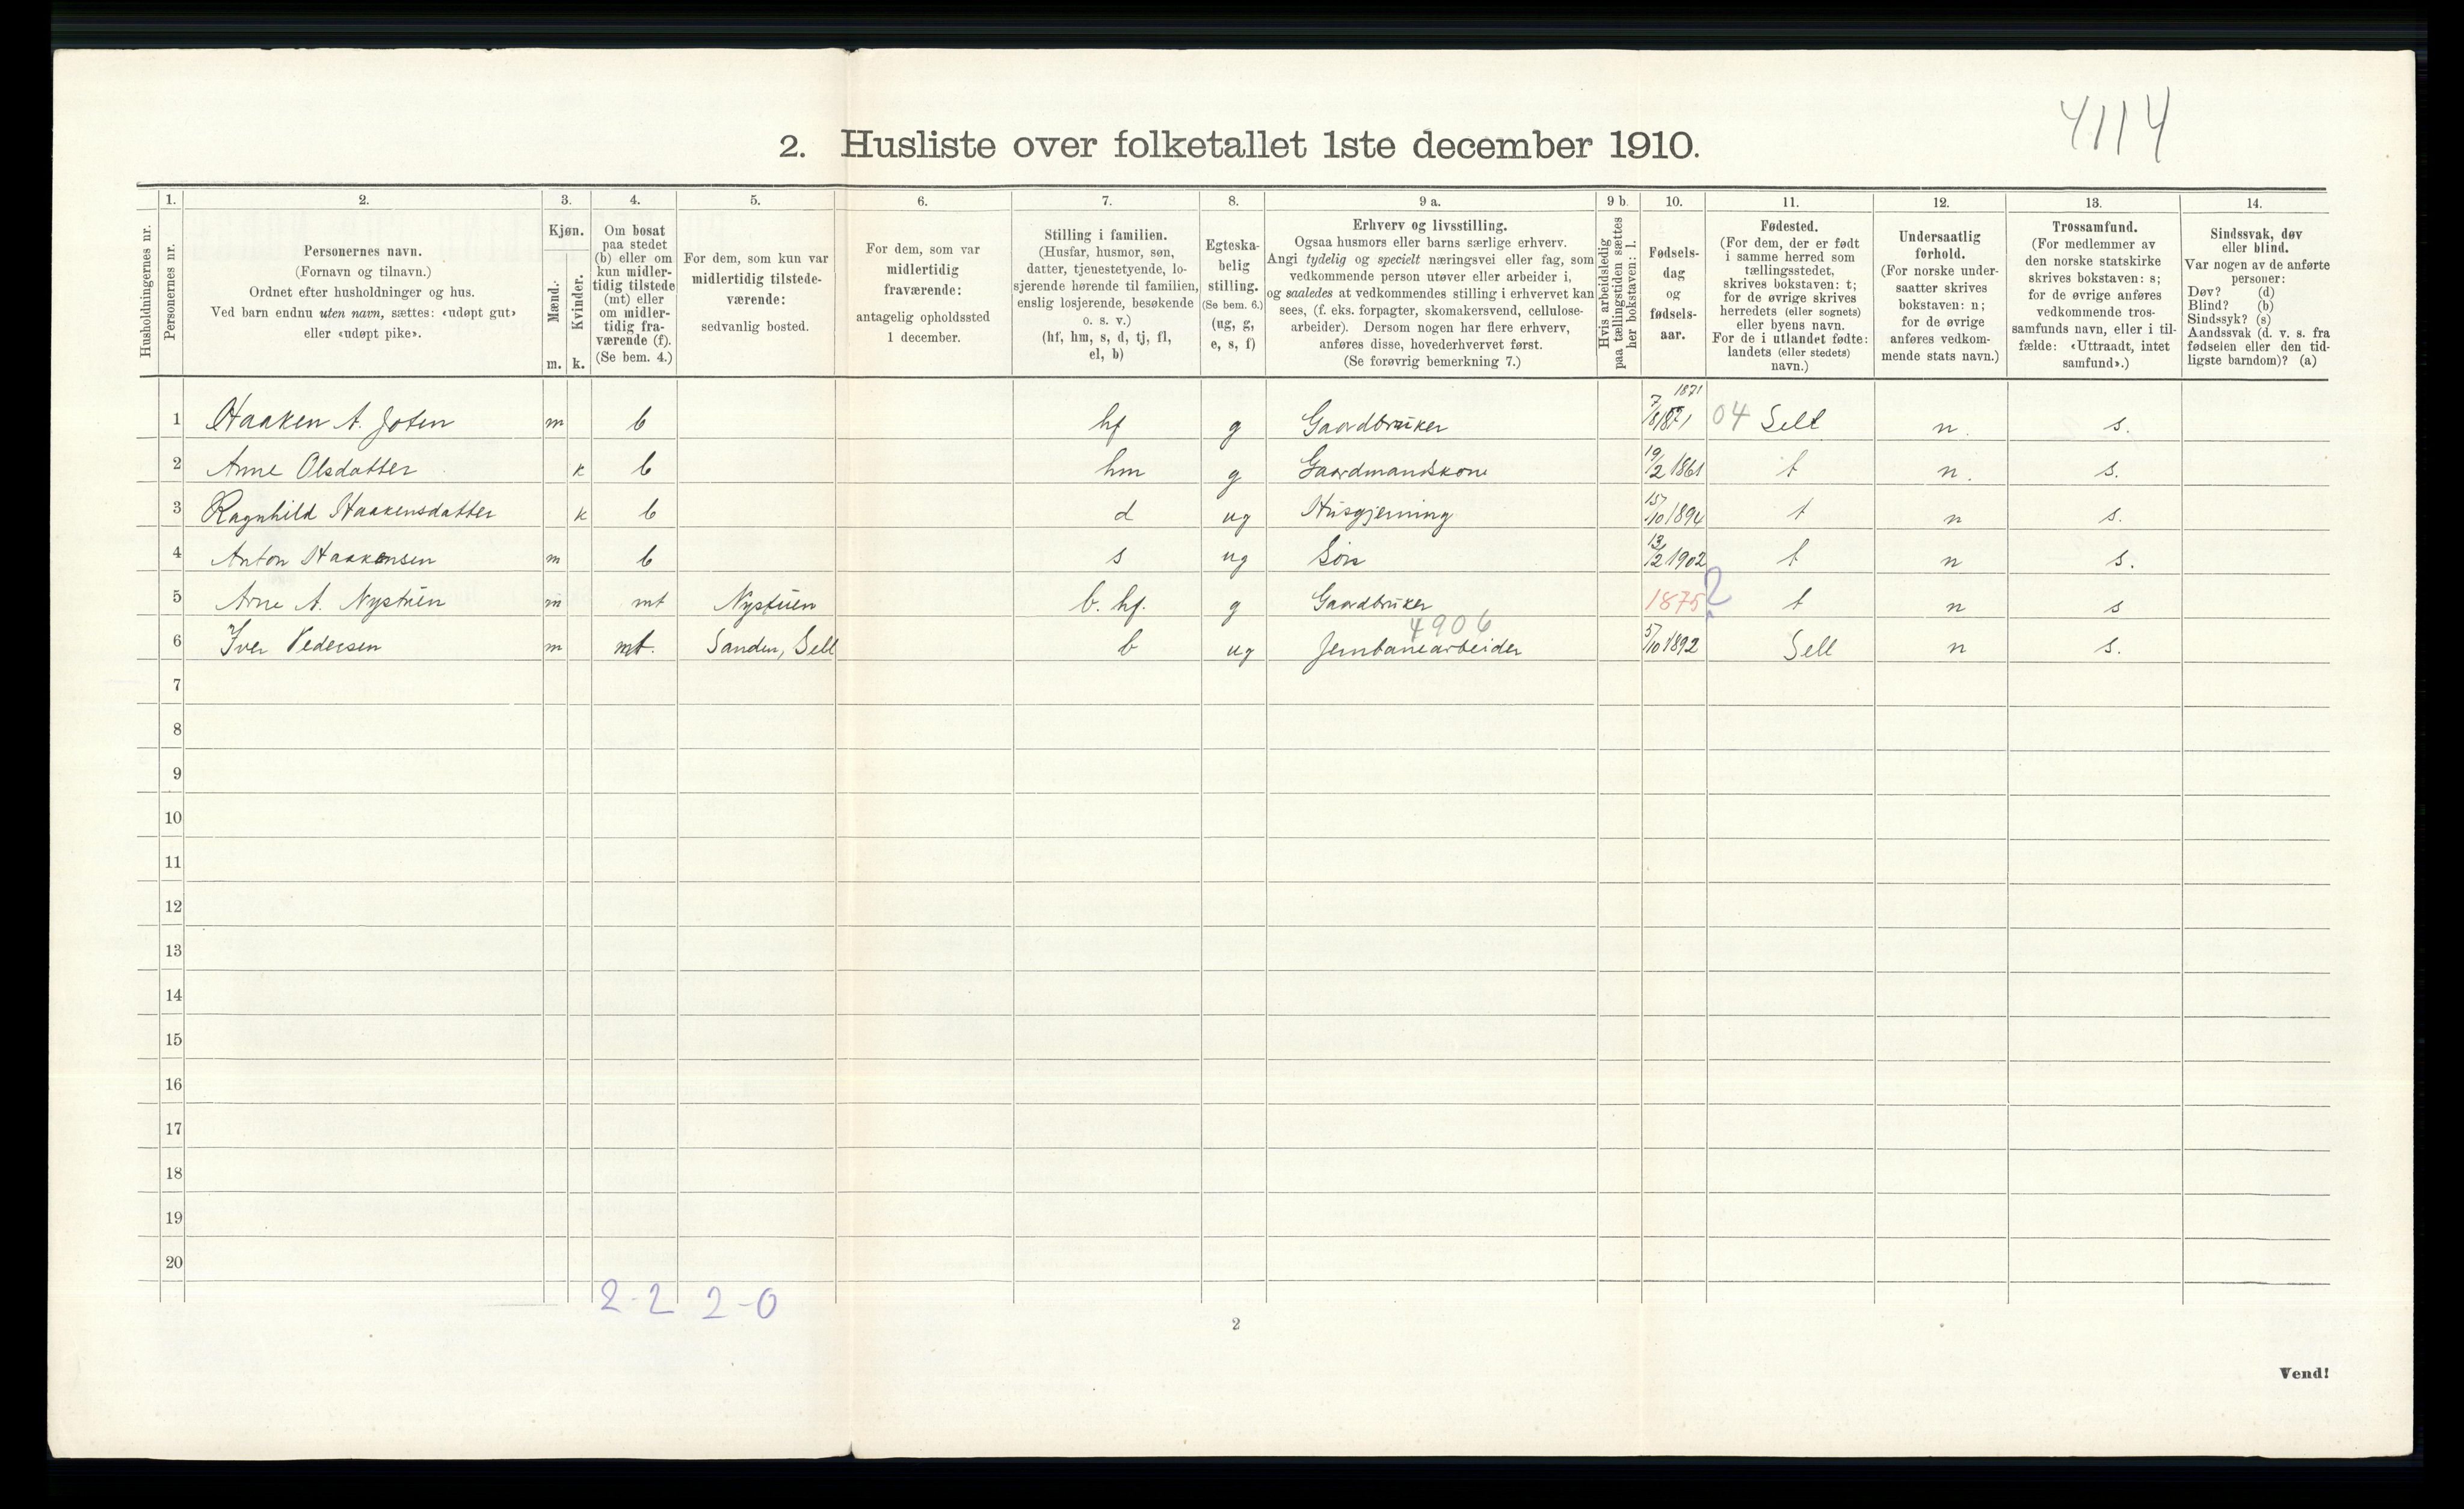 4114
2. Husliste over folketallet 1ste december 1910.
Husholdningernes nr.
1.
Personernes nr.
2.
Personernes navn.
(Fornavn og tilnavn.)
Ordnet efter husholdninger og hus.
Ved barn endnu uten navn, sættes: «udøpt gut»
eller «udøpt pike».
3.
Kjøn.
Mænd.
Kvinder.
m. k.
4.
Om bosat
paa stedet
(b) eller om
kun midler-
tidig tilstede
(mt) eller
om midler-
tidig fra-
værende (f).
(Se bem. 4.)
5.
For dem, som kun var
midlertidig tilstede-
værende:
sedvanlig bosted.
6.
For dem, som var
midlertidig
fraværende:
antagelig opholdssted
1 december.
7.
Stilling i familien.
(Husfar, husmor, søn,
datter, tjenestetyende, lo-
sjerende hørende til familien,
enslig losjerende, besøkende
o. s. v.)
(hf, hm, s, d, tj, fl,
el, b)
8.
Egteska-
belig
stilling.
(Se bem. 6.)
(ug, g,
e, s, f)
9 a.
Erhverv og livsstilling.
Ogsaa husmors eller barns særlige erhverv.
Angi tydelig og specielt næringsvei eller fag, som
vedkommende person utøver eller arbeider i,
og saaledes at vedkommendes stilling i erhvervet kan
sees, (f. eks. forpagter, skomakersvend, cellulose-
arbeider). Dersom nogen har flere erhverv,
anføres disse, hovederhvervet først.
(Se forøvrig bemerkning 7.)
9 b.
Hvis arbeidsledig
paa tællingstiden sættes
her bokstaven: l.
10.
Fødsels-
dag
og
fødsels-
aar.
11.
Fødested.
(For dem, der er født
i samme herred som
tællingsstedet,
skrives bokstaven: t;
for de øvrige skrives
herredets (eller sognets)
eller byens navn.
For de i utlandet fødte:
landets (eller stedets)
navn.)
12.
Undersaatlig
forhold.
(For norske under-
saatter skrives
bokstaven: n;
for de øvrige
anføres vedkom-
mende stats navn.)
13.
Trossamfund.
(For medlemmer av
den norske statskirke
skrives bokstaven: s;
for de øvrige anføres
vedkommende tros-
samfunds navn, eller i til-
fælde: «Uttraadt, intet
samfund».)
14.
Sindssvak, døv
eller blind.
Var nogen av de anførte
personer:
Døv? (d)
Blind? (b)
Sindssyk? (s)
Aandssvak (d. v. s. fra
fødselen eller den tid-
ligste barndom)? (a)
1871
1 Haaken A. Joten m b hf g Gaardbruker 7/8 1871 04 Sell n. s.
2 Anne Olsdatter k b hm g Gaardmandskone 19/2 1861 t n. s.
3 Ragnhild Haakensdatter k b d ug Husgjerning 15/10 1894 t n s.
4 Anton Haakensen m b s ug Søn 13/2 1902 t n s.
5 Arne A. Nystuen m mt Nystuen b. hf. g Gaardbruker 1875 ? t n s
4906
6 Iver Pedersen m mt. Sanden, Sell b ug Jernbanearbeider 5/10 1892 Sell n s.
7
8
9
10
11
12
13
14
15
16
17
18
19
20
2-2 2-0
2
Vend!